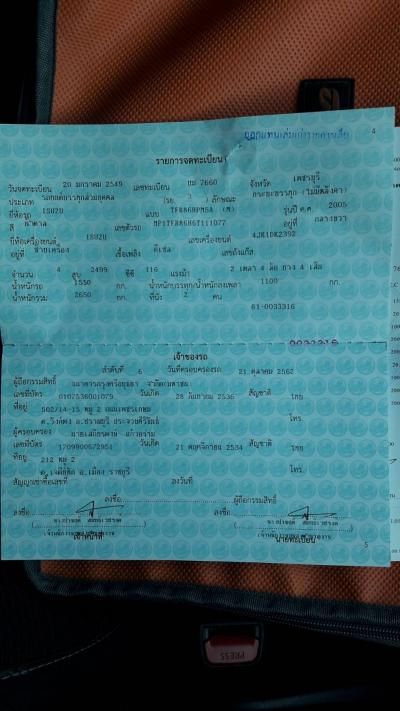 ออกแทนเล่มเก่ารายการเต็ม 4
รายการจดทะเบียน
วันจดทะเบียน 20 มกราคม 2549 เลขทะเบียน 7660 จังหวัด เพชรบุรี
ประเภท รถยนต์บรรทุกส่วนบุคคล (รย. 3 ) ลักษณะ กระบะบรรทุก (ไม่มีหลังคา)
ยี่ห้อรถ ISUZU แบบ รุ่นปี ค.ศ. 2005
สี น้ำตาล เลขตัวรถ MP1TFR86H6T111077 อยู่ที่ กลางขวา
ยี่ห้อเครื่องยนต์ ISUZU เลขเครื่องยนต์ 4JK1DK2392
อยู่ที่ เชื้อเพลิง ดีเซล เลขถังแก๊ส
จำนวน 4 สูบ 2499 ซีซี 116 แรงม้า 2 เพลา 4 ล้อ ยาง 4 เส้น
น้ำหนักรถ 1550 กก. น้ำหนักบรรทุก/น้ำหนักลงเพลา 1100 กก.
น้ำหนักรวม 2650 กก. ที่นั่ง 2 คน
61-0033316
0033316
เจ้าของรถ
ลำดับที่ 6 วันที่ครอบครองรถ 21 ตุลาคม 2562
ผู้ถือกรรมสิทธิ์ ธนาคารกรุงศรีอยุธยา จำกัด(มหาชน)
เลขที่บัตร 0107536001079 วันเกิด 28 กันยายน 2536 สัญชาติ ไทย
ที่อยู่ 502/14-15 หมู่ 2 ถนนเพชรเกษม
ต.วังก์พง อ.ปราณบุรี ประจวบคีรีขันธ์ โทร.
ผู้ครอบครอง
เลขที่บัตร 1709900672951 วันเกิด 21 พฤศจิกายน 2534 สัญชาติ ไทย
ที่อยู่ 212 หมู่ 2
ต.เจดีย์หัก อ.เมือง ราชบุรี โทร.
สัญญาเช่าซื้อเลขที่ ลงวันที่
ลงชื่อ ผู้ถือกรรมสิทธิ์
ลงชื่อ ลงชื่อ
เจ้าหน้าที่ นายทะเบียน
5
PRESS